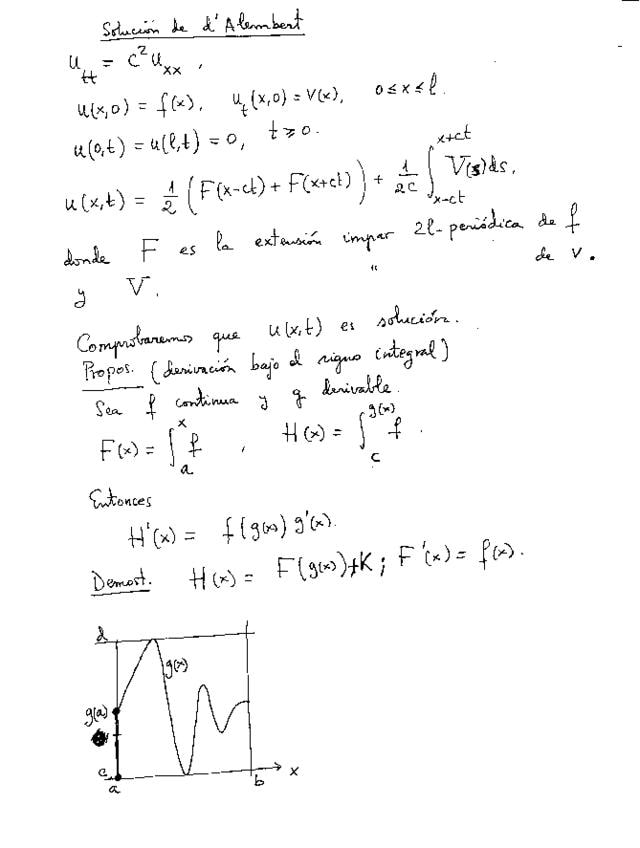 Solución de d'Alembert
u_tt = c² u_xx ,
u(x,0) = f(x), u_t(x,0) = v(x), 0 ≤ x ≤ l.
u(0,t) = u(l,t) = 0, t ≥ 0.
u(x,t) = 1/2 ( F(x-ct) + F(x+ct) ) + 1/2c ∫_{x-ct}^{x+ct} V(s)ds,
donde F es la extensión impar 2l-periódica de f
y V, " de v.
Comprobaremos que u(x,t) es solución.
Propos. (derivación bajo el signo integral)
Sea f continua y g derivable.
F(x) = ∫_a^x f , H(x) = ∫_c^{g(x)} f .
Entonces
H'(x) = f(g(x)) g'(x).
Demost. H(x) = F(g(x))+K ; F'(x) = f(x).
d
g(x)
g(a)
c
a
b
x